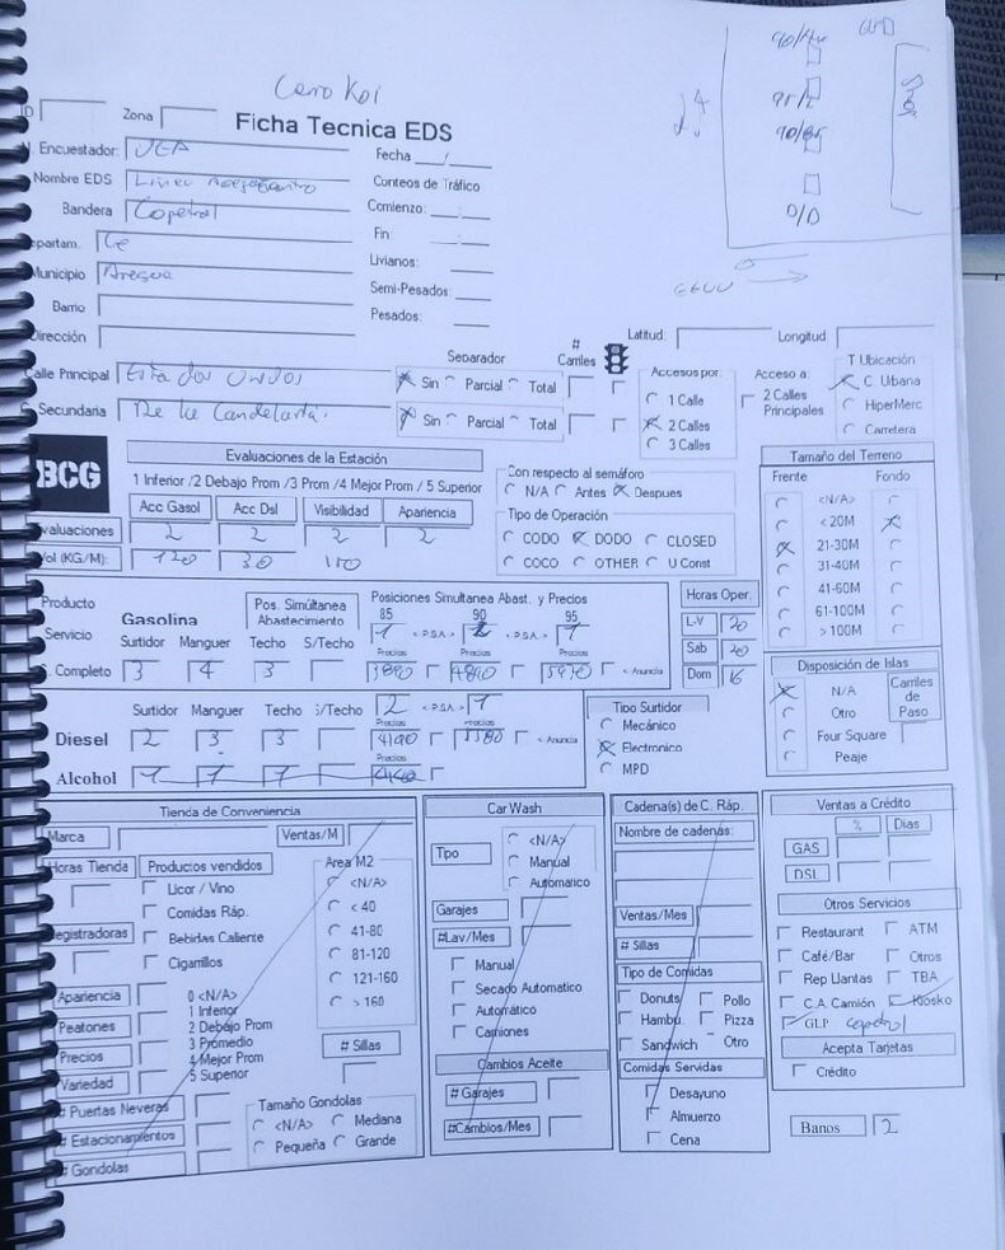 90/
GLP
Cerro Koi
ID
Zona
Ficha Tecnica EDS
95/
90/85
D/D
EEUU
N. Encuestador: UEA
Fecha __/__
Nombre EDS
Conteos de Tráfico
Bandera Copetrol
Comienzo: __:__
Departam. Ce
Fin: __:__
Livianos:
Municipio Aregua
Semi-Pesados:
Barrio
Pesados:
Dirección
Latitud:
Longitud
Calle Principal Estados Unidos
Separador
# Carriles
Sin Parcial Total
C. Secundaria De la Candelaria
Sin Parcial Total
Accesos por:
1 Calle
2 Calles
3 Calles
Acceso a:
2 Calles Principales
T Ubicación
C Ubana
HiperMerc
Carretera
BCG
Evaluaciones de la Estación
1 Inferior /2 Debajo Prom /3 Prom /4 Mejor Prom / 5 Superior
Acc Gasol Acc Dsl Visibilidad Apariencia
Evaluaciones 2 2 2 2
Vol (KG/M): 120 30 150
Con respecto al semáforo
N/A Antes Despues
Tipo de Operación
CODO DODO CLOSED
COCO OTHER U Const
Tamaño del Terreno
Frente Fondo
<N/A>
< 20M
21-30M
31-40M
41-60M
61-100M
> 100M
Producto
Servicio
Gasolina
Pos. Simúltanea Abastecimiento
Posiciones Simultanea Abast. y Precios
85 90 95
1 < P.S.A. > 2 < P.S.A. > 1
Surtidor Manguer Techo S/Techo
Precios Precios Precios
S. Completo 3 4 3 4890 5970 < Anuncia
Horas Oper.
L-V 20
Sab 20
Dom 16
Disposición de Islas
N/A
Otro
Four Square
Peaje
Carriles de Paso
Surtidor Manguer Techo S/Techo 2 < P.S.A. > 1
Precios Precios
Diesel 2 3 3 4190 < Anuncia
Precios
Alcohol 1 1 1
Tipo Surtidor
Mecánico
Electronico
MPD
Tienda de Conveniencia
Marca
Ventas/M
Horas Tienda
Productos vendidos
Licor / Vino
Comidas Ráp.
Registradoras
Bebidas Caliente
Cigarrillos
Area M2
<N/A>
< 40
41-80
81-120
121-160
> 160
Apariencia
Peatones
Precios
Variedad
0 <N/A>
1 Inferior
2 Debajo Prom
3 Promedio
4 Mejor Prom
5 Superior
# Sillas
# Puertas Neveras
# Estacionamientos
# Gondolas
Tamaño Gondolas
<N/A> Mediana
Pequeña Grande
Car Wash
Tipo
<N/A>
Manual
Automatico
Garajes
#Lav/Mes
Manual
Secado Automatico
Automático
Camiones
Cambios Aceite
# Garajes
#Cambios/Mes
Cadena(s) de C. Ráp.
Nombre de cadenas:
Ventas/Mes
# Sillas
Tipo de Comidas
Donuts Pollo
Hambu. Pizza
Sandwich Otro
Comidas Servidas
Desayuno
Almuerzo
Cena
Ventas a Crédito
% Dias
GAS
DSL
Otros Servicios
Restaurant ATM
Café/Bar Otros
Rep Llantas TBA
C.A. Camión Kiosko
GLP copetrol
Acepta Tarjetas
Crédito
Banos 2